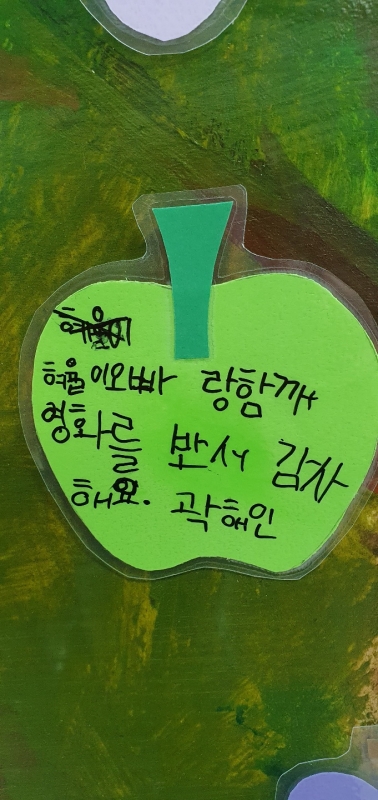 혀율이오빠 랑함께
영화를 봔서 감사
해요. 곽해인